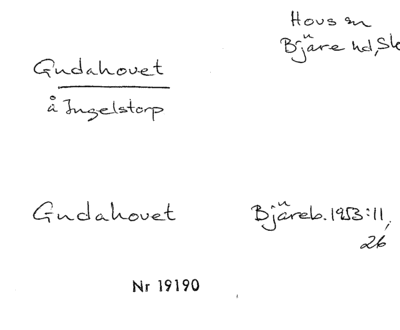 Hovs sn
Bjäre hd, Sk
Gudahovet
å Ingelstorp
Gudahovet
Bjäreb. 1953:11,
26
Nr 19190